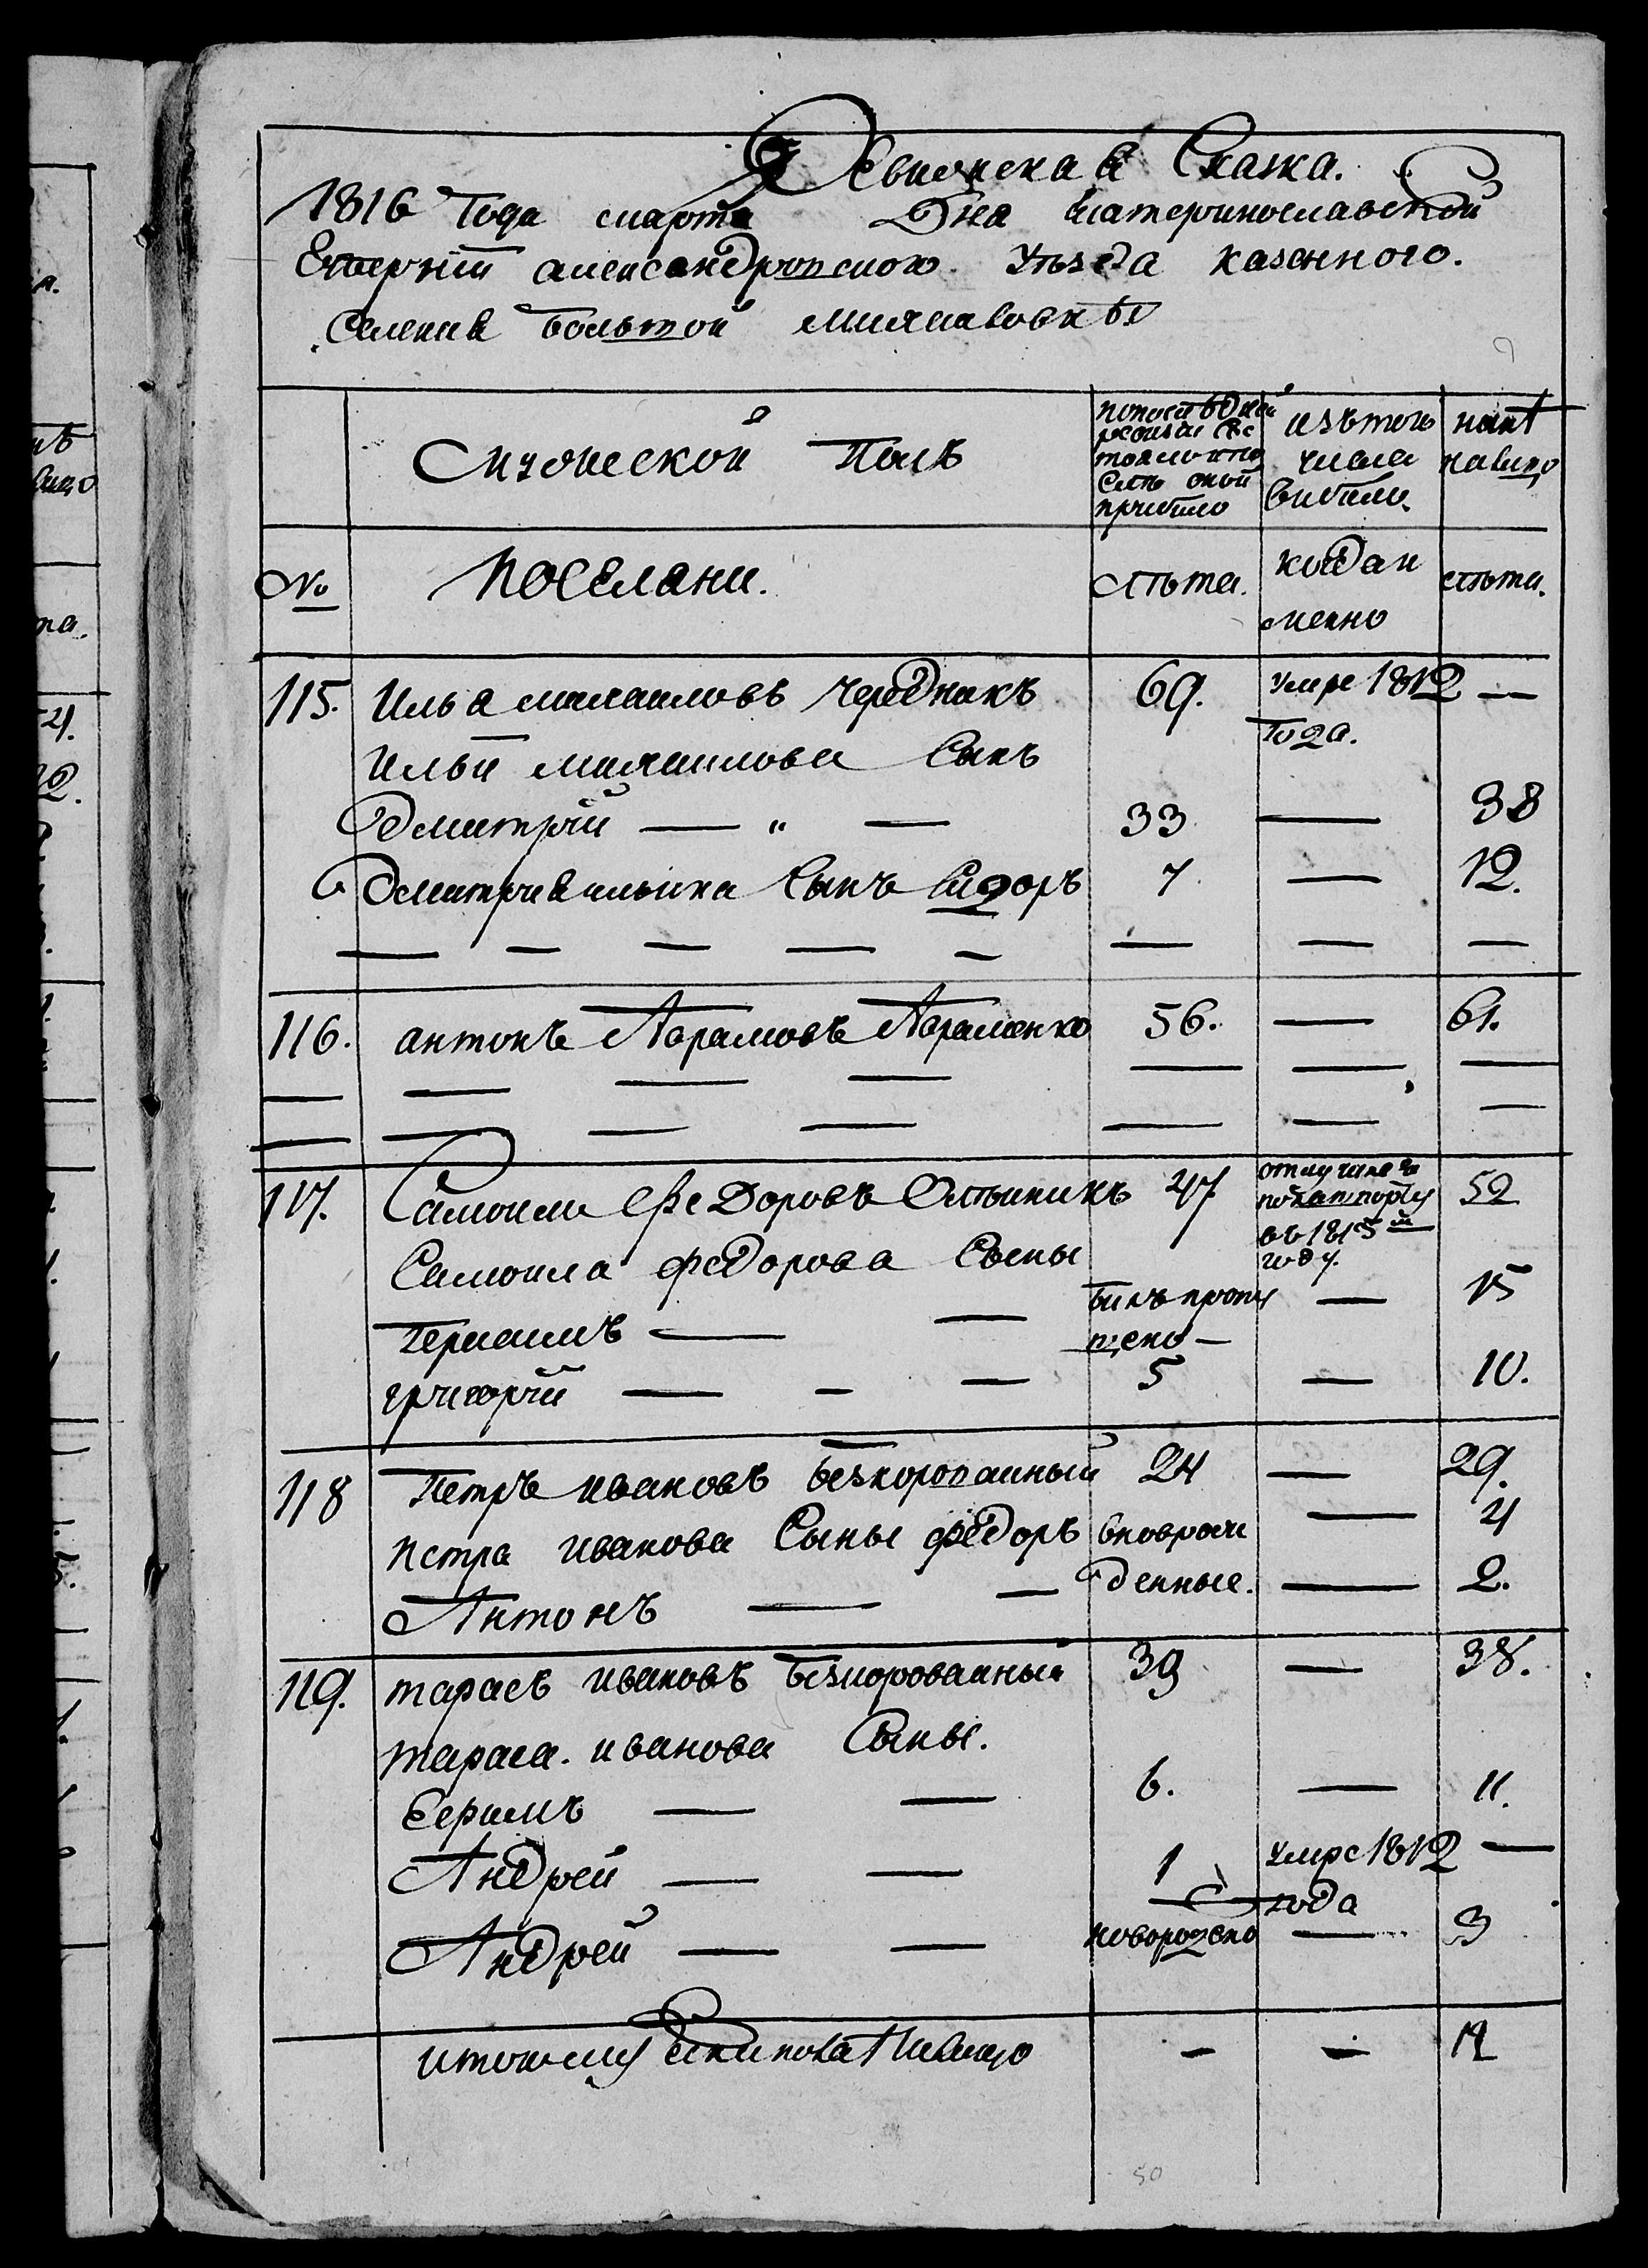 Ревизская Сказка.
1816 Года марта Дня Екатеринославской
Губернiи александровского Уѣзда казенного.
Селения Большой михайловки
мужеской Полъ
попоследней
ревизiи сос
тояло и по
слѣ оной
прибыло
изътого
числа
выбыло.
ныне
налицо
№
поселяни.
лѣта.
когда и
менно
лѣта.
115. Илья михаиловъ Чередникъ 69. умре 1812 —
Года.
Ильи михаилова Сынъ
Дмитрiй — " — 33 — 38
Дмитрия ильина Сынъ Сидоръ 7 — 12.
— — — — — — — —
116. антонъ Аврамовъ Авраменко 56. — 61.
— — — — — — —
— — — — — — —
117. Самоила Федоровъ Олѣиникъ 47 отлучился
попашпорту
въ 1815м
году.
52
Самоила федорова Сыны
Герасимъ — — билъ пропу
щено —
— 15
григорiй — — — 5 — 10.
118 Петръ ивановъ безкорованный 24 — 29.
Петра иванова Сыны федоръ вноврож — 4
Антонъ — — денные. — 2.
119. тарасъ ивановъ безкорованный 39 — 38.
тараса. иванова Сыны.
Ефимъ — — 6. — 11.
Андрей — — 1 умре 1812 —
года
Андрей — — новорождено — 3
Итого налицо — — 12
50